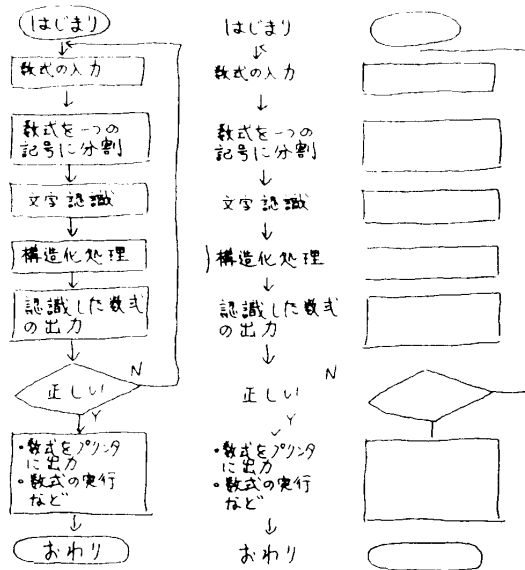 はじまり
数式の入力
数式を一つの
記号に分割
文字認識
構造化処理
認識した数式
の出力
正しい
N
Y
・数式をプリンタ
に出力
・数式の実行
など
おわり
はじまり
数式の入力
数式を一つの
記号に分割
文字認識
構造化処理
認識した数式
の出力
N
正しい
Y
・数式をプリンタ
に出力
・数式の実行
など
おわり